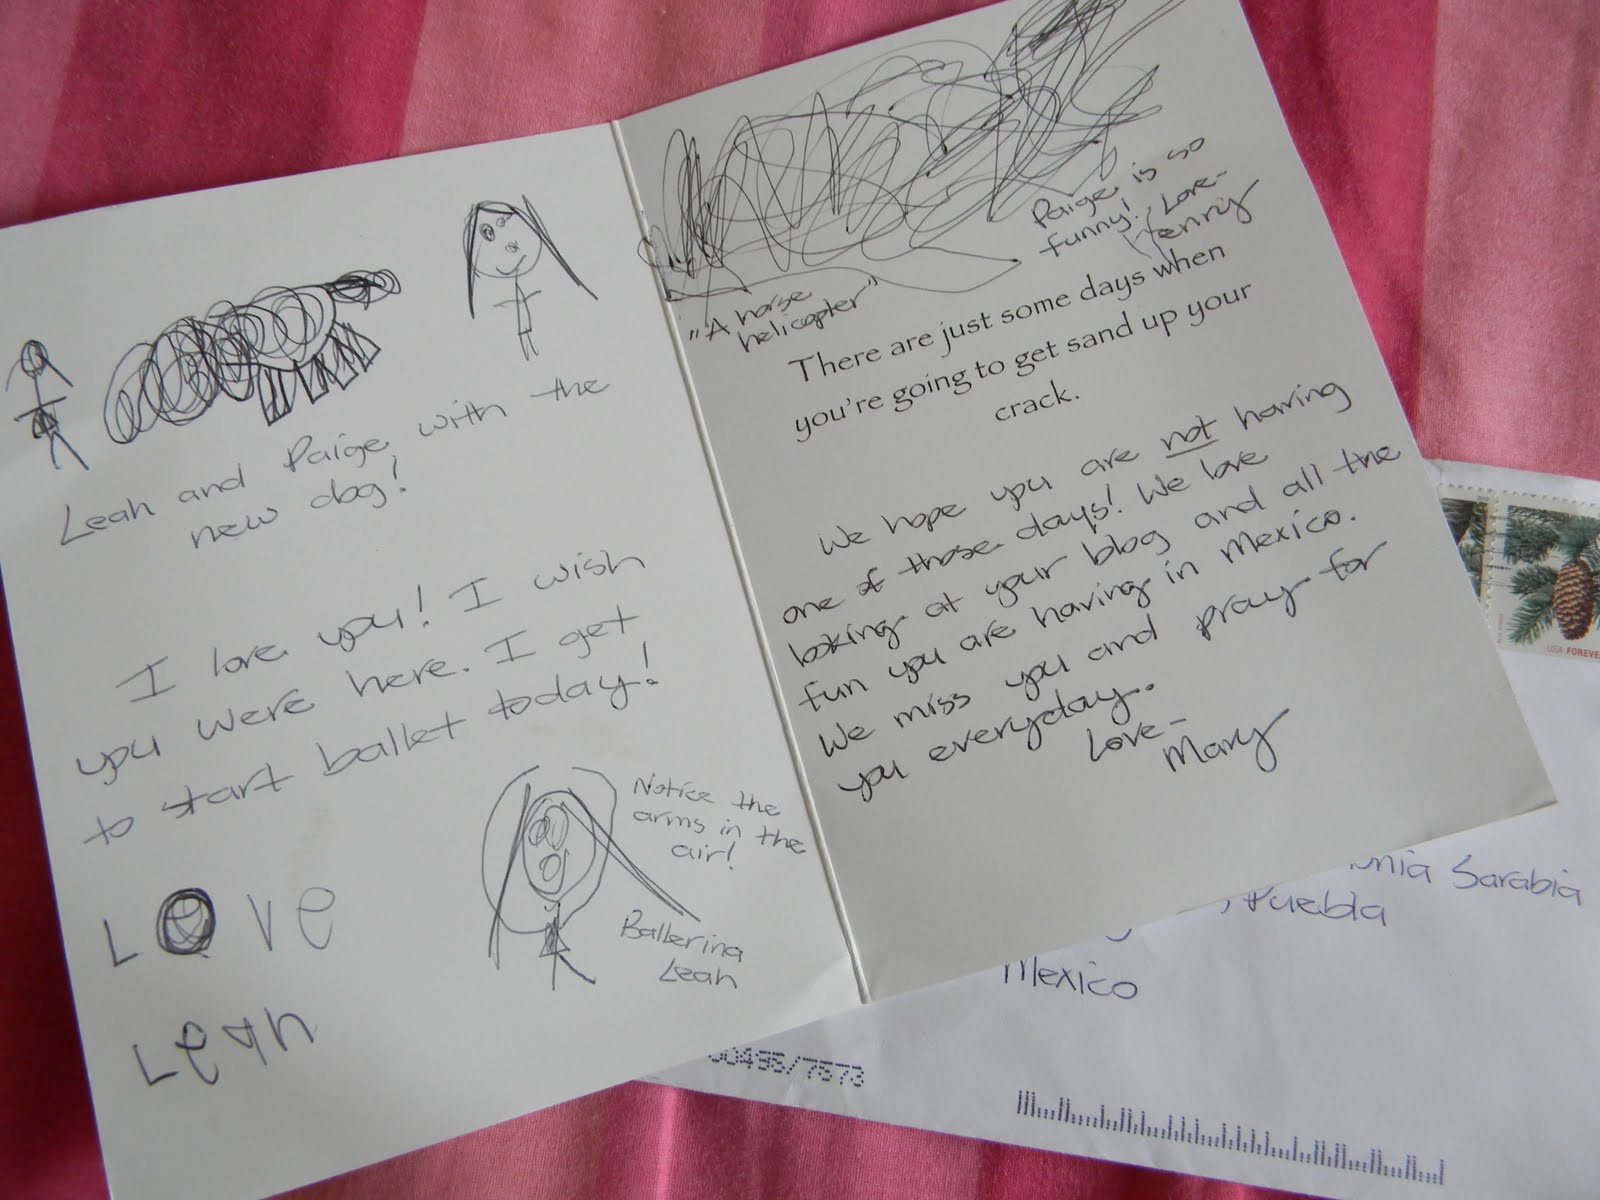 Leah and Paige with the
new dog!
I love you! I wish
you were here. I get
to start ballet today!
Notice the
arms in the
air!
Ballerina
Leah
Love
Leah
"A horse
helicopter"
Paige is so
funny! Love-
Henry
There are just some days when
you're going to get sand up your
crack.
We hope you are not having
one of those days! We love
looking at your blog and all the
fun you are having in Mexico.
We miss you and pray for
you everyday.
Love-
Mary
USA FOREVER
Sarabia
Puebla
Mexico
00495/7573